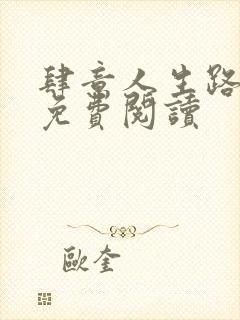 肆意人生路
免費閱讀
歐奎